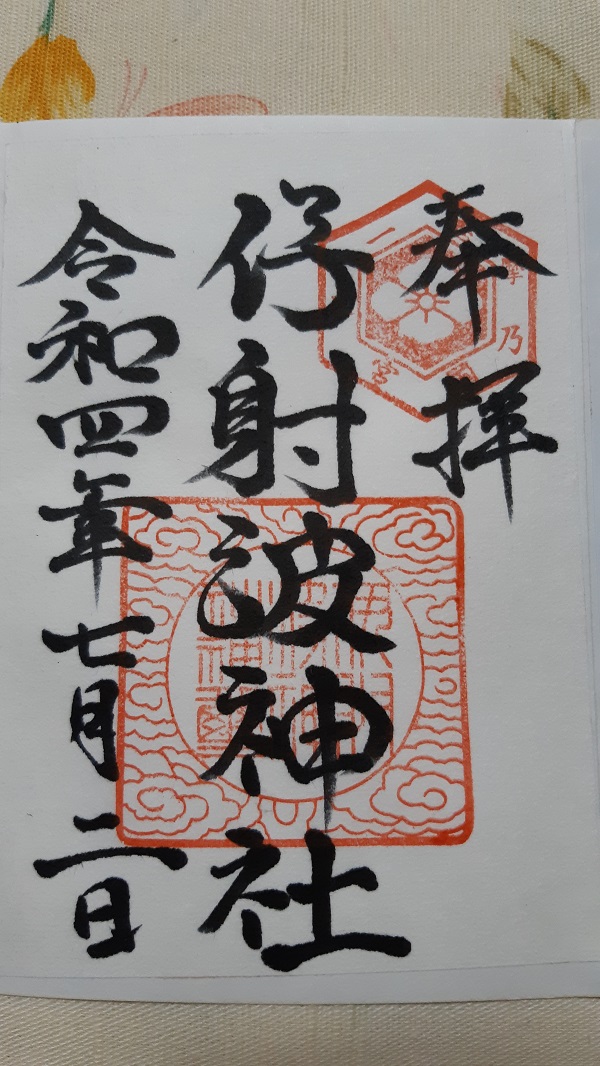 奉拝
乃
宮
伊射波神社
令和四年七月二日